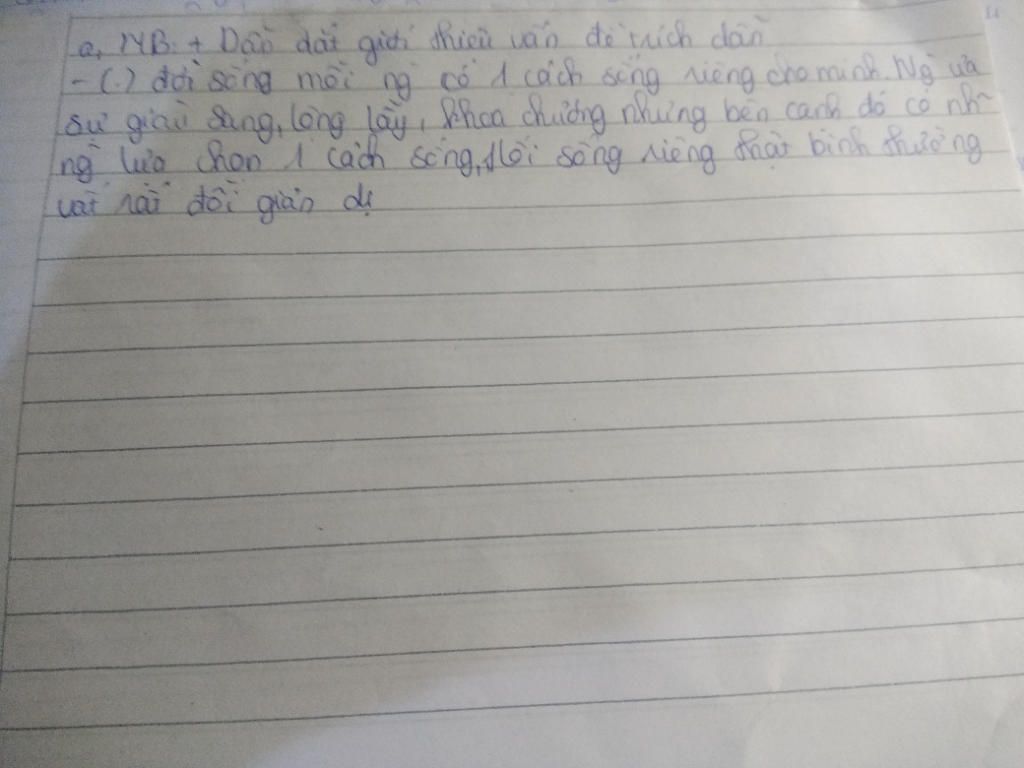 a, MB: + Dẫn dắt giới thiệu vấn đề trích dẫn
- (.) đời sống mỗi ng có 1 cách sống riêng cho mình. Ng ưa
sự giàu sang, lộng lẫy, khoa chương nhưng bên cạnh đó có nh~
ng lựa chọn 1 cách sống, lối sống riêng thật bình thường
và rất đỗi giản dị